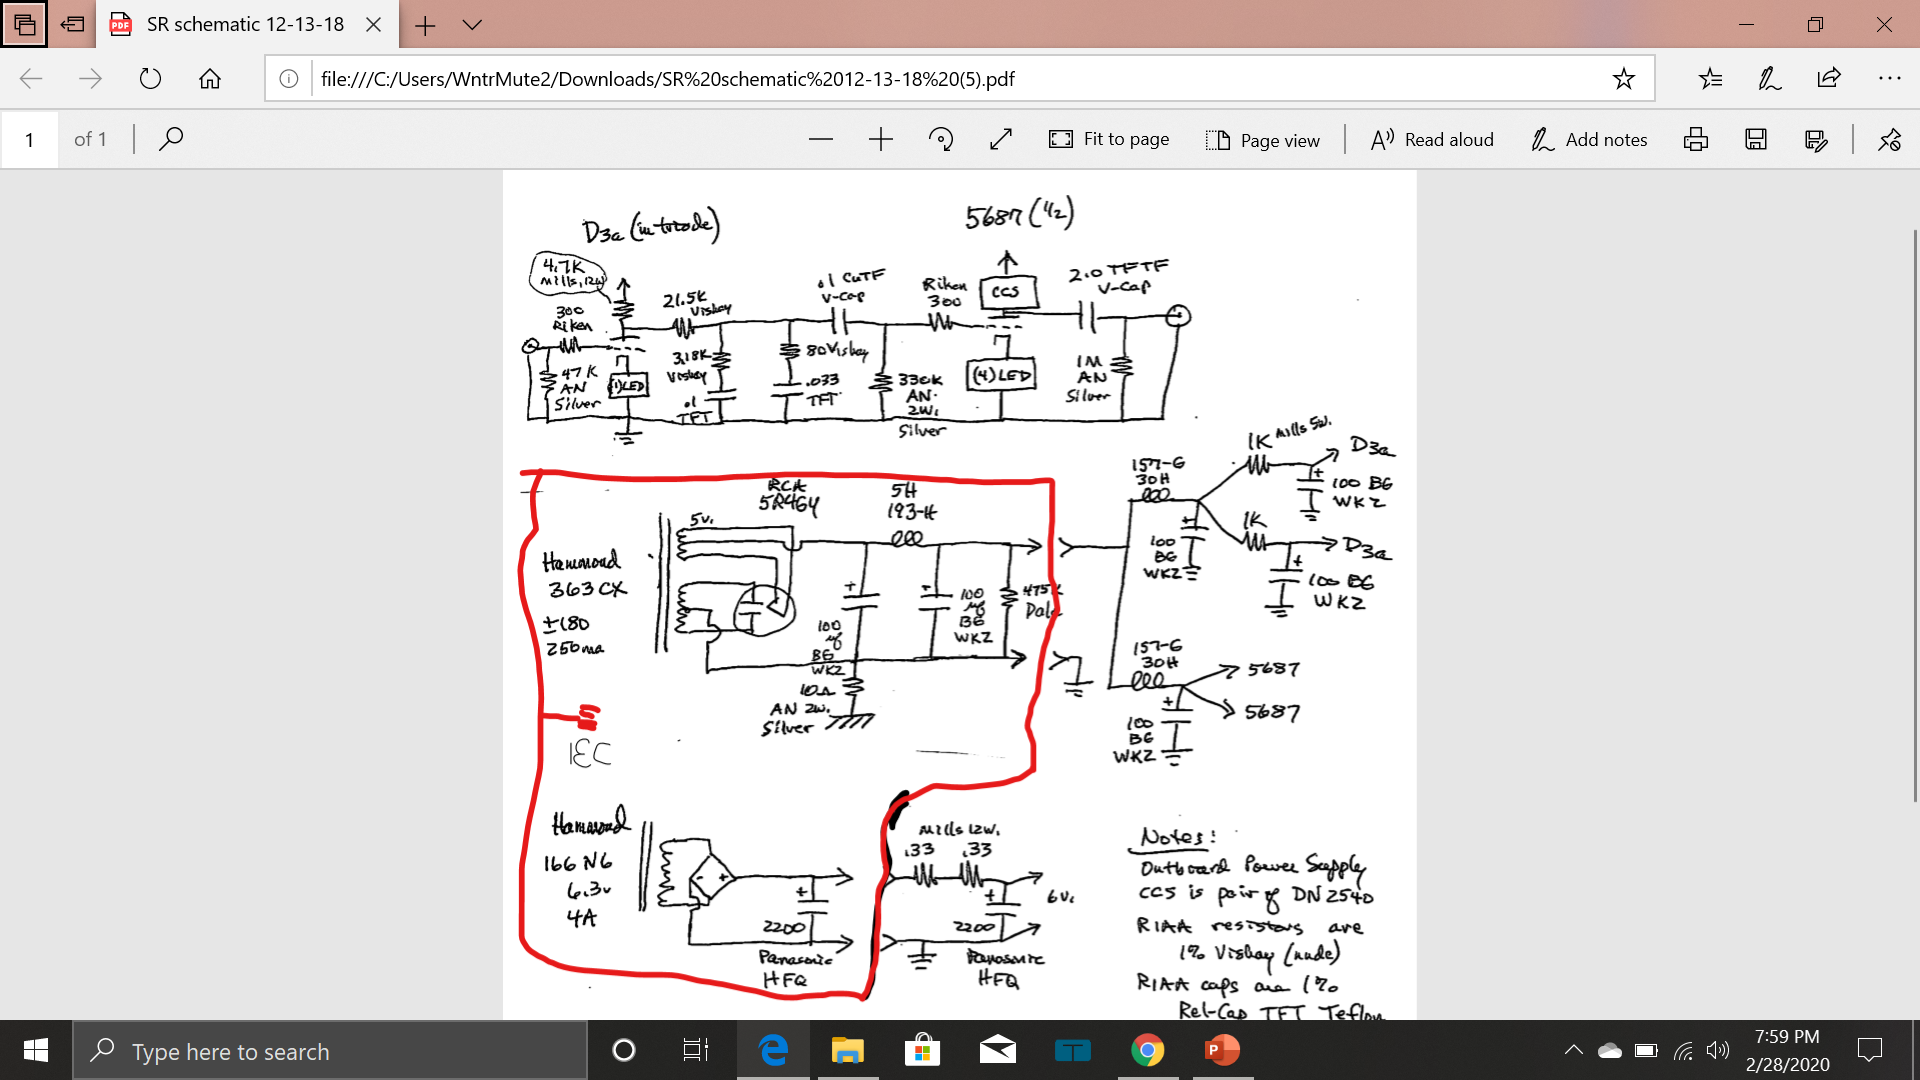 SR schematic 12-13-18
file:///C:/Users/WntrMute2/Downloads/SR%20schematic%2012-13-18%20(5).pdf
1 of 1
Fit to page
Page view
Read aloud
Add notes
D3a (in triode)
5687 (1/2)
4.7K
Mills, 12W
300
Riken
47K
AN
Silver
(1) LED
21.5K
Vishay
3.18K
Vishay
.1
TFT
.1 CuTF
V-Cap
80 Vishay
.033
TFT
Riken
300
330K
AN
2W.
Silver
CCS
(4) LED
2.0 TFTF
V-Cap
1M
AN
Silver
RCA
5R4GY
5H
193-H
5v.
Hammond
363CX
±180
250ma
100
uf
BG
WKZ
100
uf
BG
WKZ
475K
Dale
10Ω
AN 2W.
Silver
IEC
157-G
30H
100
BG
WKZ
1K Mills 5W.
D3a
100 BG
WKZ
1K
D3a
100 BG
WKZ
157-G
30H
5687
5687
100
BG
WKZ
Hammond
166N6
6.3v
4A
2200
Panasonic
HFQ
Mills 12W.
.33 .33
6v.
2200
Panasonic
HFQ
Notes:
Outboard Power Supply
CCS is pair of DN2540
RIAA resistors are
1% Vishay (nude)
RIAA caps are 1%
Rel-Cap TFT Teflon
Type here to search
7:59 PM
2/28/2020